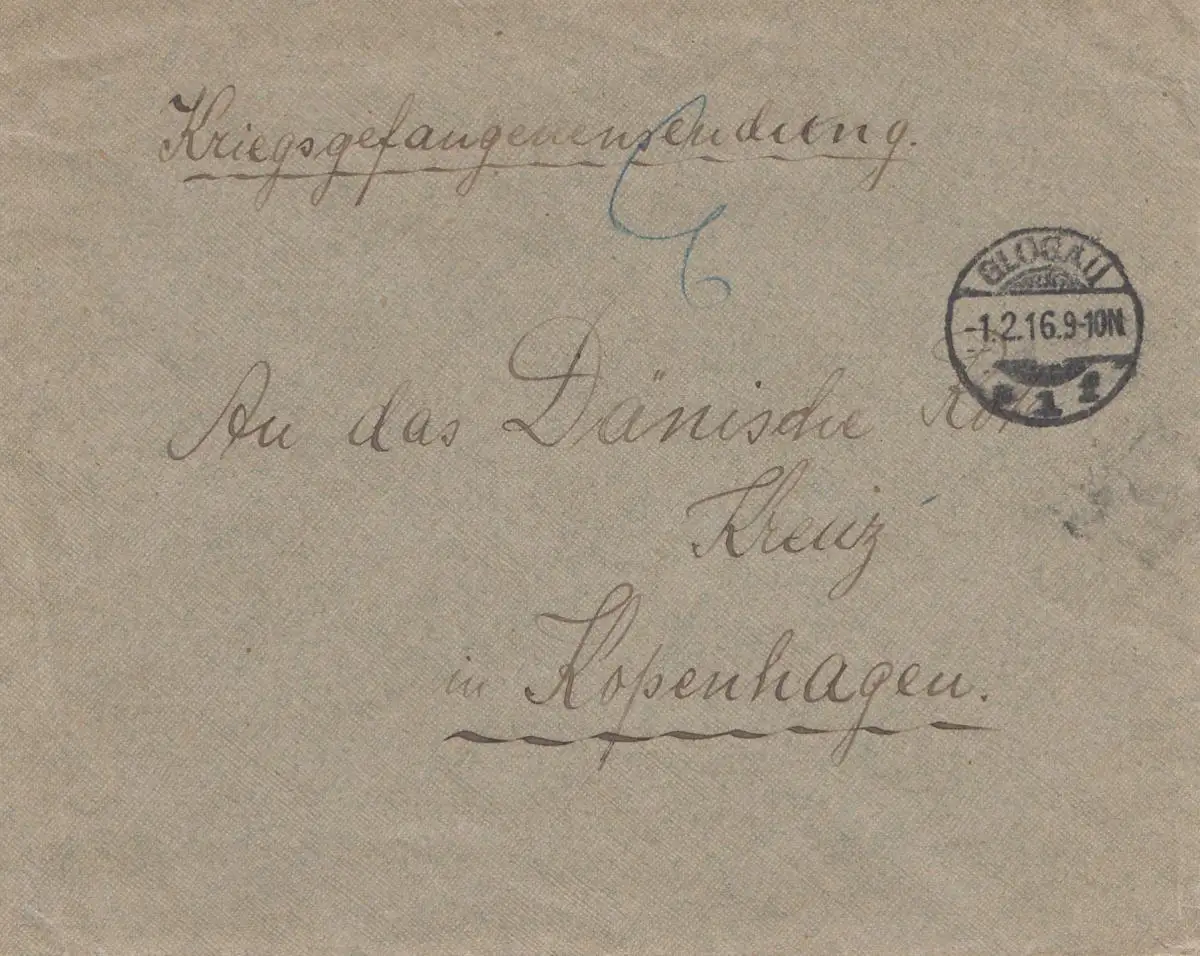 Kriegsgefangenensendung.
GLOGAU
-1.2.16.9-10N.
* 1 f
An das Dänische Rot
Kreuz
in Kopenhagen.